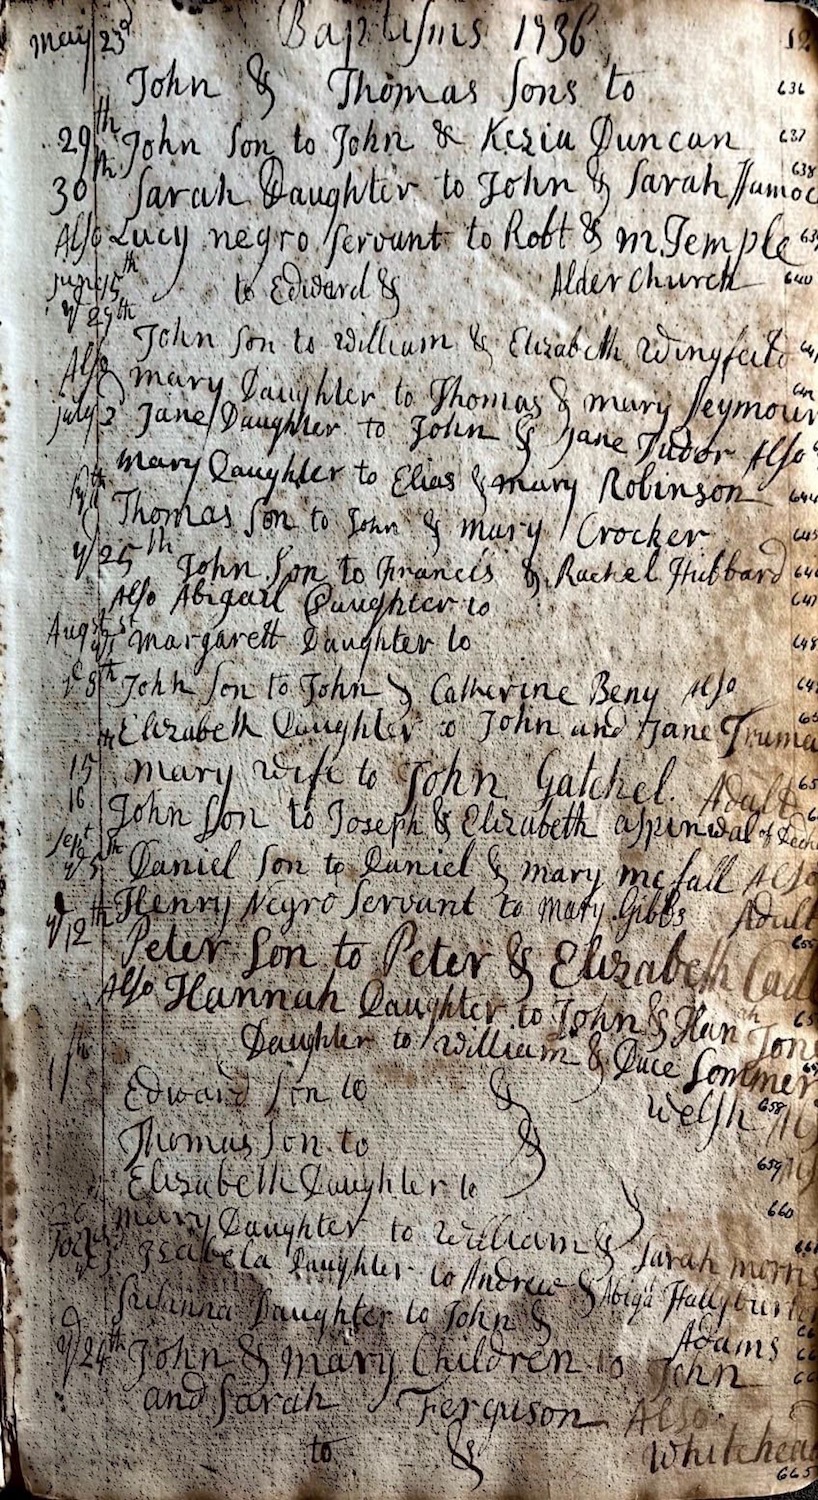 May 23d Baptisms 1736 12
John & Thomas Sons to 636
29th John Son to John & Kezia Duncan 637
30th Sarah Daughter to John & Sarah 638
Also Lucy negro Servant to Robt & m. Temple
June 15th to Edward & Alderchurch 640
ye 29th
John Son to William & Elizabeth Wingfeild
Also mary Daughter to Thomas & mary Seymour
July 2 Jane Daughter to John & Jane Tudor Also
mary Daughter to Elias & mary Robinson 644
Thomas Son to John & mary Crocker 645
ye 25th John Son to Francis & Rachel Hubbard 646
Also Abigail Daughter to 647
Augst 1st Margarett Daughter to 648
ye 8th John Son to John & Catherine Beny Also 649
Elizabeth Daughter to John and Jane Truma
15 mary wife to John Gatchel. Adult
16 John Son to Joseph & Elizabeth aspinwal of
Sept ye 5th Daniel Son to Daniel & mary mcfall Also
Henry Negro Servant to Mary Gibbs Adult
ye 12th Peter Son to Peter & Elizabeth 655
Also Hannah Daughter to John & Hanah Jons
Daughter to William & Duce Sommer
Edward Son to & Welsh 658
Thomas Son to &
Elizabeth Daughter to 659
mary Daughter to William & Sarah morris 660
Isabela Daughter to Andrew & Abiga Hallyburton
Susanna Daughter to John & Adams
ye 24th John & mary Children to John
and Sarah Ferguson Also
to & Whitehead
665